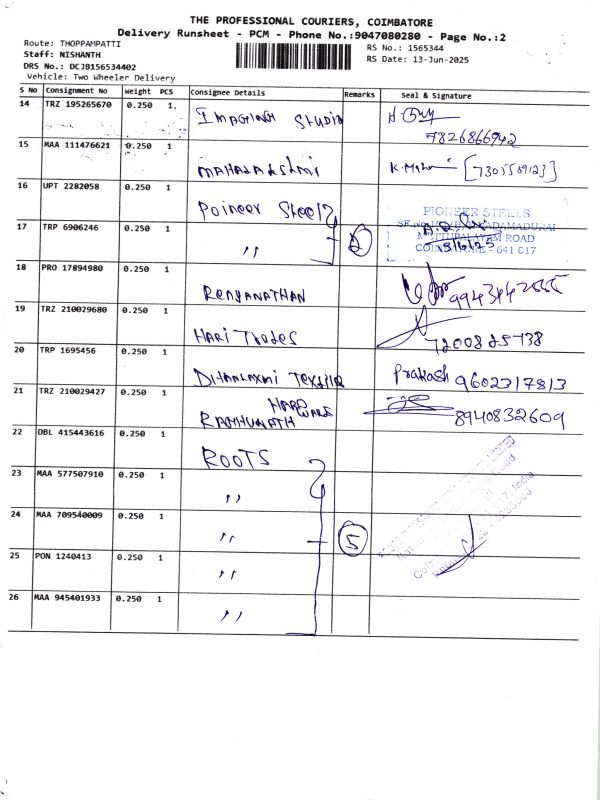 THE PROFESSIONAL COURIERS, COIMBATORE
Delivery Runsheet - PCM - Phone No.:9047080280 - Page No.:2
Route: THOPPAMPATTI
RS No.: 1565344
Staff: NISHANTH
RS Date: 13-Jun-2025
DRS No.: DCJB156534402
Vehicle: Two Wheeler Delivery
S No Consignment No Weight PCS Consignee Details Remarks Seal & Signature
14 TRZ 195265670 0.250 1 IMAGING STUDIO
7826866942
15 MAA 111476621 0.250 1 MAHALAKSHMI [7305589123]
16 UPT 2282058 0.250 1 Poineer Steels
PIONEER STEELS
17 TRP 6906246 0.250 1 ,, 2
ROAD
641 017
18 PRO 17894980 0.250 1 RENGANATHAN
19 TRZ 210029680 0.250 1 HARI Trades 7200825738
20 TRP 1695456 0.250 1 DHANLAXMI TEXTILE Prakash 9602317813
21 TRZ 210029427 0.250 1 RAGHUNATH HARDWARE 8940832609
22 DBL 415443616 0.250 1 ROOTS
23 MAA 577507910 0.250 1 ,,
24 MAA 709540009 0.250 1 ,, 5
25 PON 1240413 0.250 1 ,,
26 MAA 945401933 0.250 1 ,,